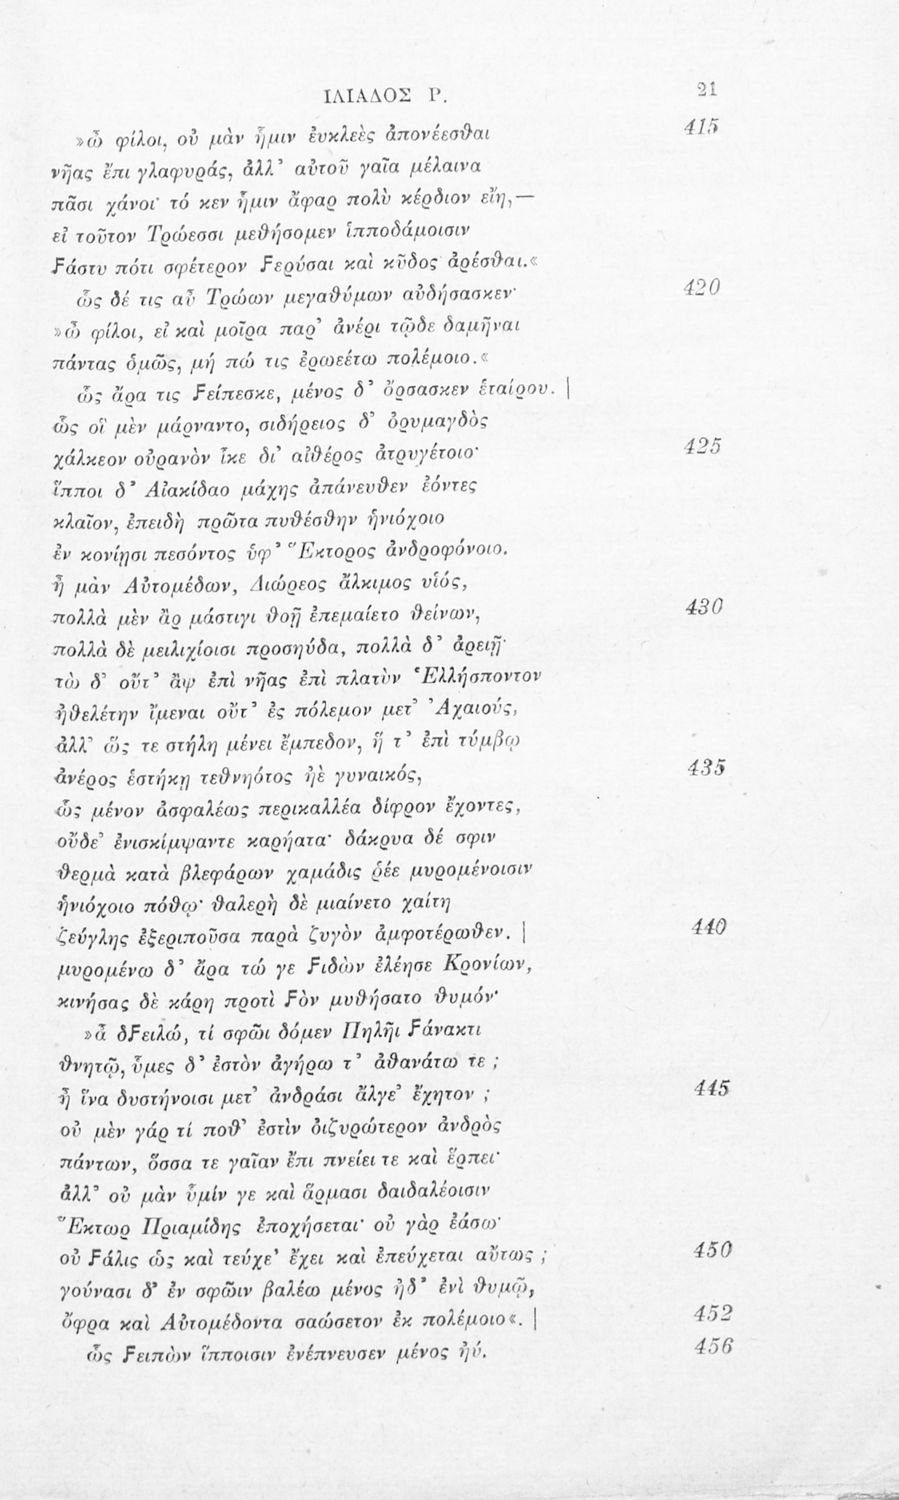 ΙΛΙΑΔΟΣ Ρ. 21
»ὦ φίλοι, οὐ μὰν ἧμιν ἐυκλεὲς ἀπονέεσθαι 415
νῆας ἔπι γλαφυράς, ἀλλ’ αὐτοῦ γαῖα μέλαινα
πᾶσι χάνοι· τό κεν ἧμιν ἄφαρ πολὺ κέρδιον εἴη,—
εἰ τοῦτον Τρώεσσι μεθήσομεν ἱπποδάμοισιν
ϝάστυ πότι σφέτερον ϝερύσαι καὶ κῦδος ἀρέσθαι.«
ὣς δέ τις αὖ Τρώων μεγαθύμων αὐδήσασκεν· 420
»ὦ φίλοι, εἰ καὶ μοῖρα παρ’ ἀνέρι τῷδε δαμῆναι
πάντας ὁμῶς, μή πώ τις ἐρωεέτω πολέμοιο.«
ὣς ἄρα τις ϝείπεσκε, μένος δ’ ὄρσασκεν ἑταίρου. |
ὣς οἳ μὲν μάρναντο, σιδήρειος δ’ ὀρυμαγδὸς
χάλκεον οὐρανὸν ἷκε δι’ αἰθέρος ἀτρυγέτοιο· 425
ἵπποι δ’ Αἰακίδαο μάχης ἀπάνευθεν ἐόντες
κλαῖον, ἐπειδὴ πρῶτα πυθέσθην ἡνιόχοιο
ἐν κονίῃσι πεσόντος ὑφ’ Ἕκτορος ἀνδροφόνοιο.
ἦ μὰν Αὐτομέδων, Διώρεος ἄλκιμος υἱός,
πολλὰ μὲν ἂρ μάστιγι θοῇ ἐπεμαίετο θείνων, 430
πολλὰ δὲ μειλιχίοισι προσηύδα, πολλὰ δ’ ἀρειῇ·
τὼ δ’ οὔτ’ ἂψ ἐπὶ νῆας ἐπὶ πλατὺν Ἑλλήσποντον
ἠθελέτην ἴμεναι οὔτ’ ἐς πόλεμον μετ’ Ἀχαιούς,
ἀλλ’ ὥς τε στήλη μένει ἔμπεδον, ἥ τ’ ἐπὶ τύμβῳ
ἀνέρος ἑστήκῃ τεθνηότος ἠὲ γυναικός, 435
ὣς μένον ἀσφαλέως περικαλλέα δίφρον ἔχοντες,
οὔδε’ ἐνισκίμψαντε καρήατα· δάκρυα δέ σφιν
θερμὰ κατὰ βλεφάρων χαμάδις ῥέε μυρομένοισιν
ἡνιόχοιο πόθῳ· θαλερὴ δὲ μιαίνετο χαίτη
ζεύγλης ἐξεριποῦσα παρὰ ζυγὸν ἀμφοτέρωθεν. | 440
μυρομένω δ’ ἄρα τώ γε ϝιδὼν ἐλέησε Κρονίων,
κινήσας δὲ κάρη προτὶ ϝὸν μυθήσατο θυμόν·
»ἆ δϝειλώ, τί σφῶι δόμεν Πηλῆι ϝάνακτι
θνητῷ, ὔμες δ’ ἐστὸν ἀγήρω τ’ ἀθανάτω τε ;
ἦ ἵνα δυστήνοισι μετ’ ἀνδράσι ἄλγε’ ἔχητον ; 445
οὐ μὲν γάρ τί ποθ’ ἐστὶν ὀιζυρώτερον ἀνδρὸς
πάντων, ὅσσα τε γαῖαν ἔπι πνείει τε καὶ ἕρπει·
ἀλλ’ οὐ μὰν ὔμίν γε καὶ ἅρμασι δαιδαλέοισιν
Ἕκτωρ Πριαμίδης ἐποχήσεται· οὐ γὰρ ἐάσω·
οὐ ϝάλις ὡς καὶ τεύχε’ ἔχει καὶ ἐπεύχεται αὔτως ; 450
γούνασι δ’ ἐν σφῶιν βαλέω μένος ἠδ’ ἐνὶ θυμῷ,
ὄφρα καὶ Αὐτομέδοντα σαώσετον ἐκ πολέμοιο«. | 452
ὣς ϝειπὼν ἵπποισιν ἐνέπνευσεν μένος ἠύ. 456